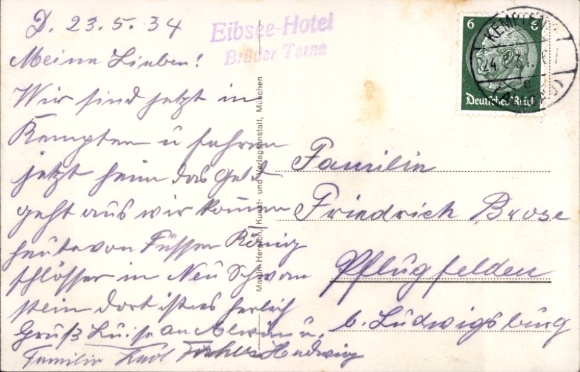 D. 23.5.34
Meine Lieben!
Wir sind jetzt in
Kempten u fahren
jetzt heim das Geld
geht aus wir kommen
heute von Füssen König
schlösser in Neu Schwan
stein dort ist es herlich
Gruß Luise an Alwin u.
Familie Karl Hedwig
Eibsee-Hotel
Brüder Terne
Martin Herpich, Kunst- und Verlagsanstalt, München
6 6
Deutsches Reich
KEMPTEN
Familie
Friedrich Brose
Pflugfelden
b. Ludwigsburg